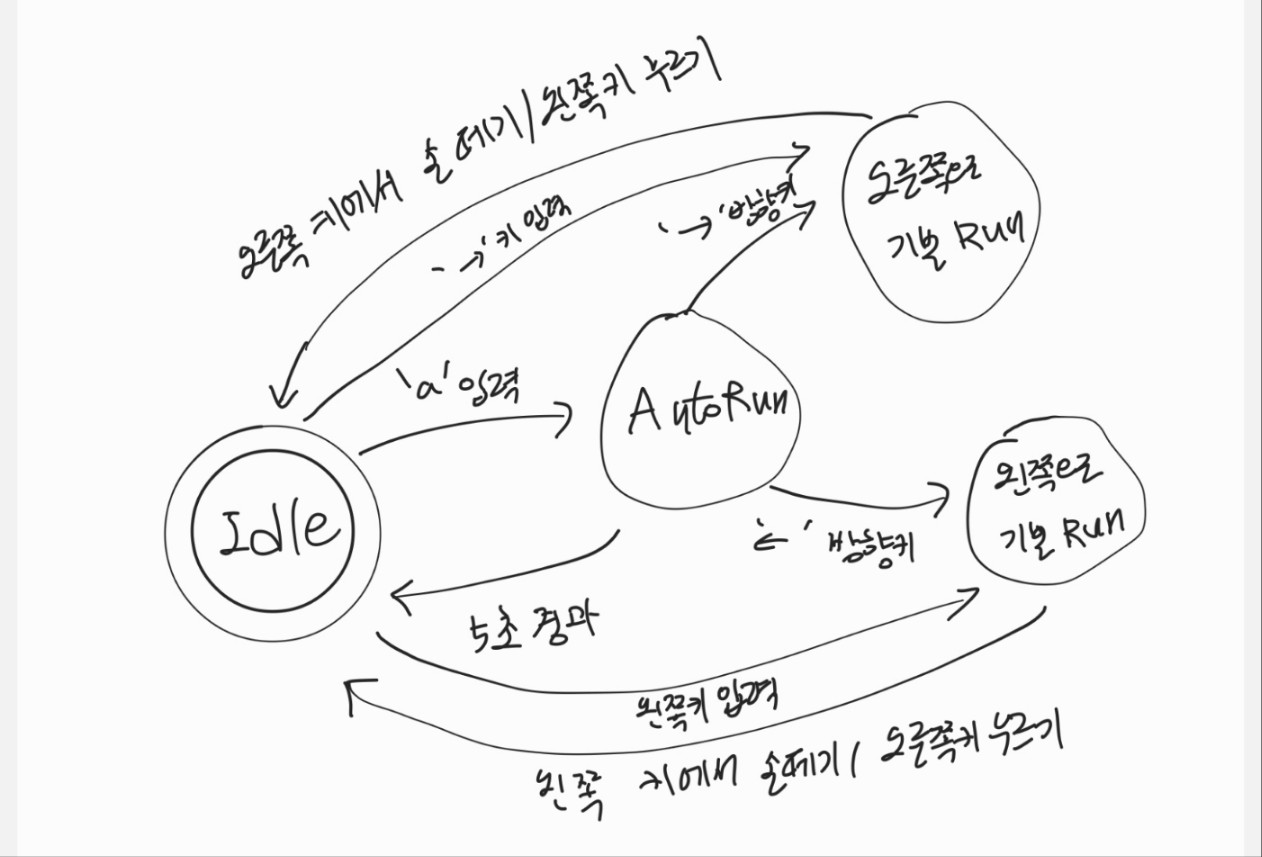 오른쪽 키에서 손 떼기/왼쪽키 누르기
'→' 키 입력
'→' 방향키
오른쪽으로
기본 Run
'a' 입력
AutoRun
Idle
왼쪽으로
기본 Run
'←' 방향키
5초 경과
왼쪽키 입력
왼쪽 키에서 손떼기/ 오른쪽키 누르기